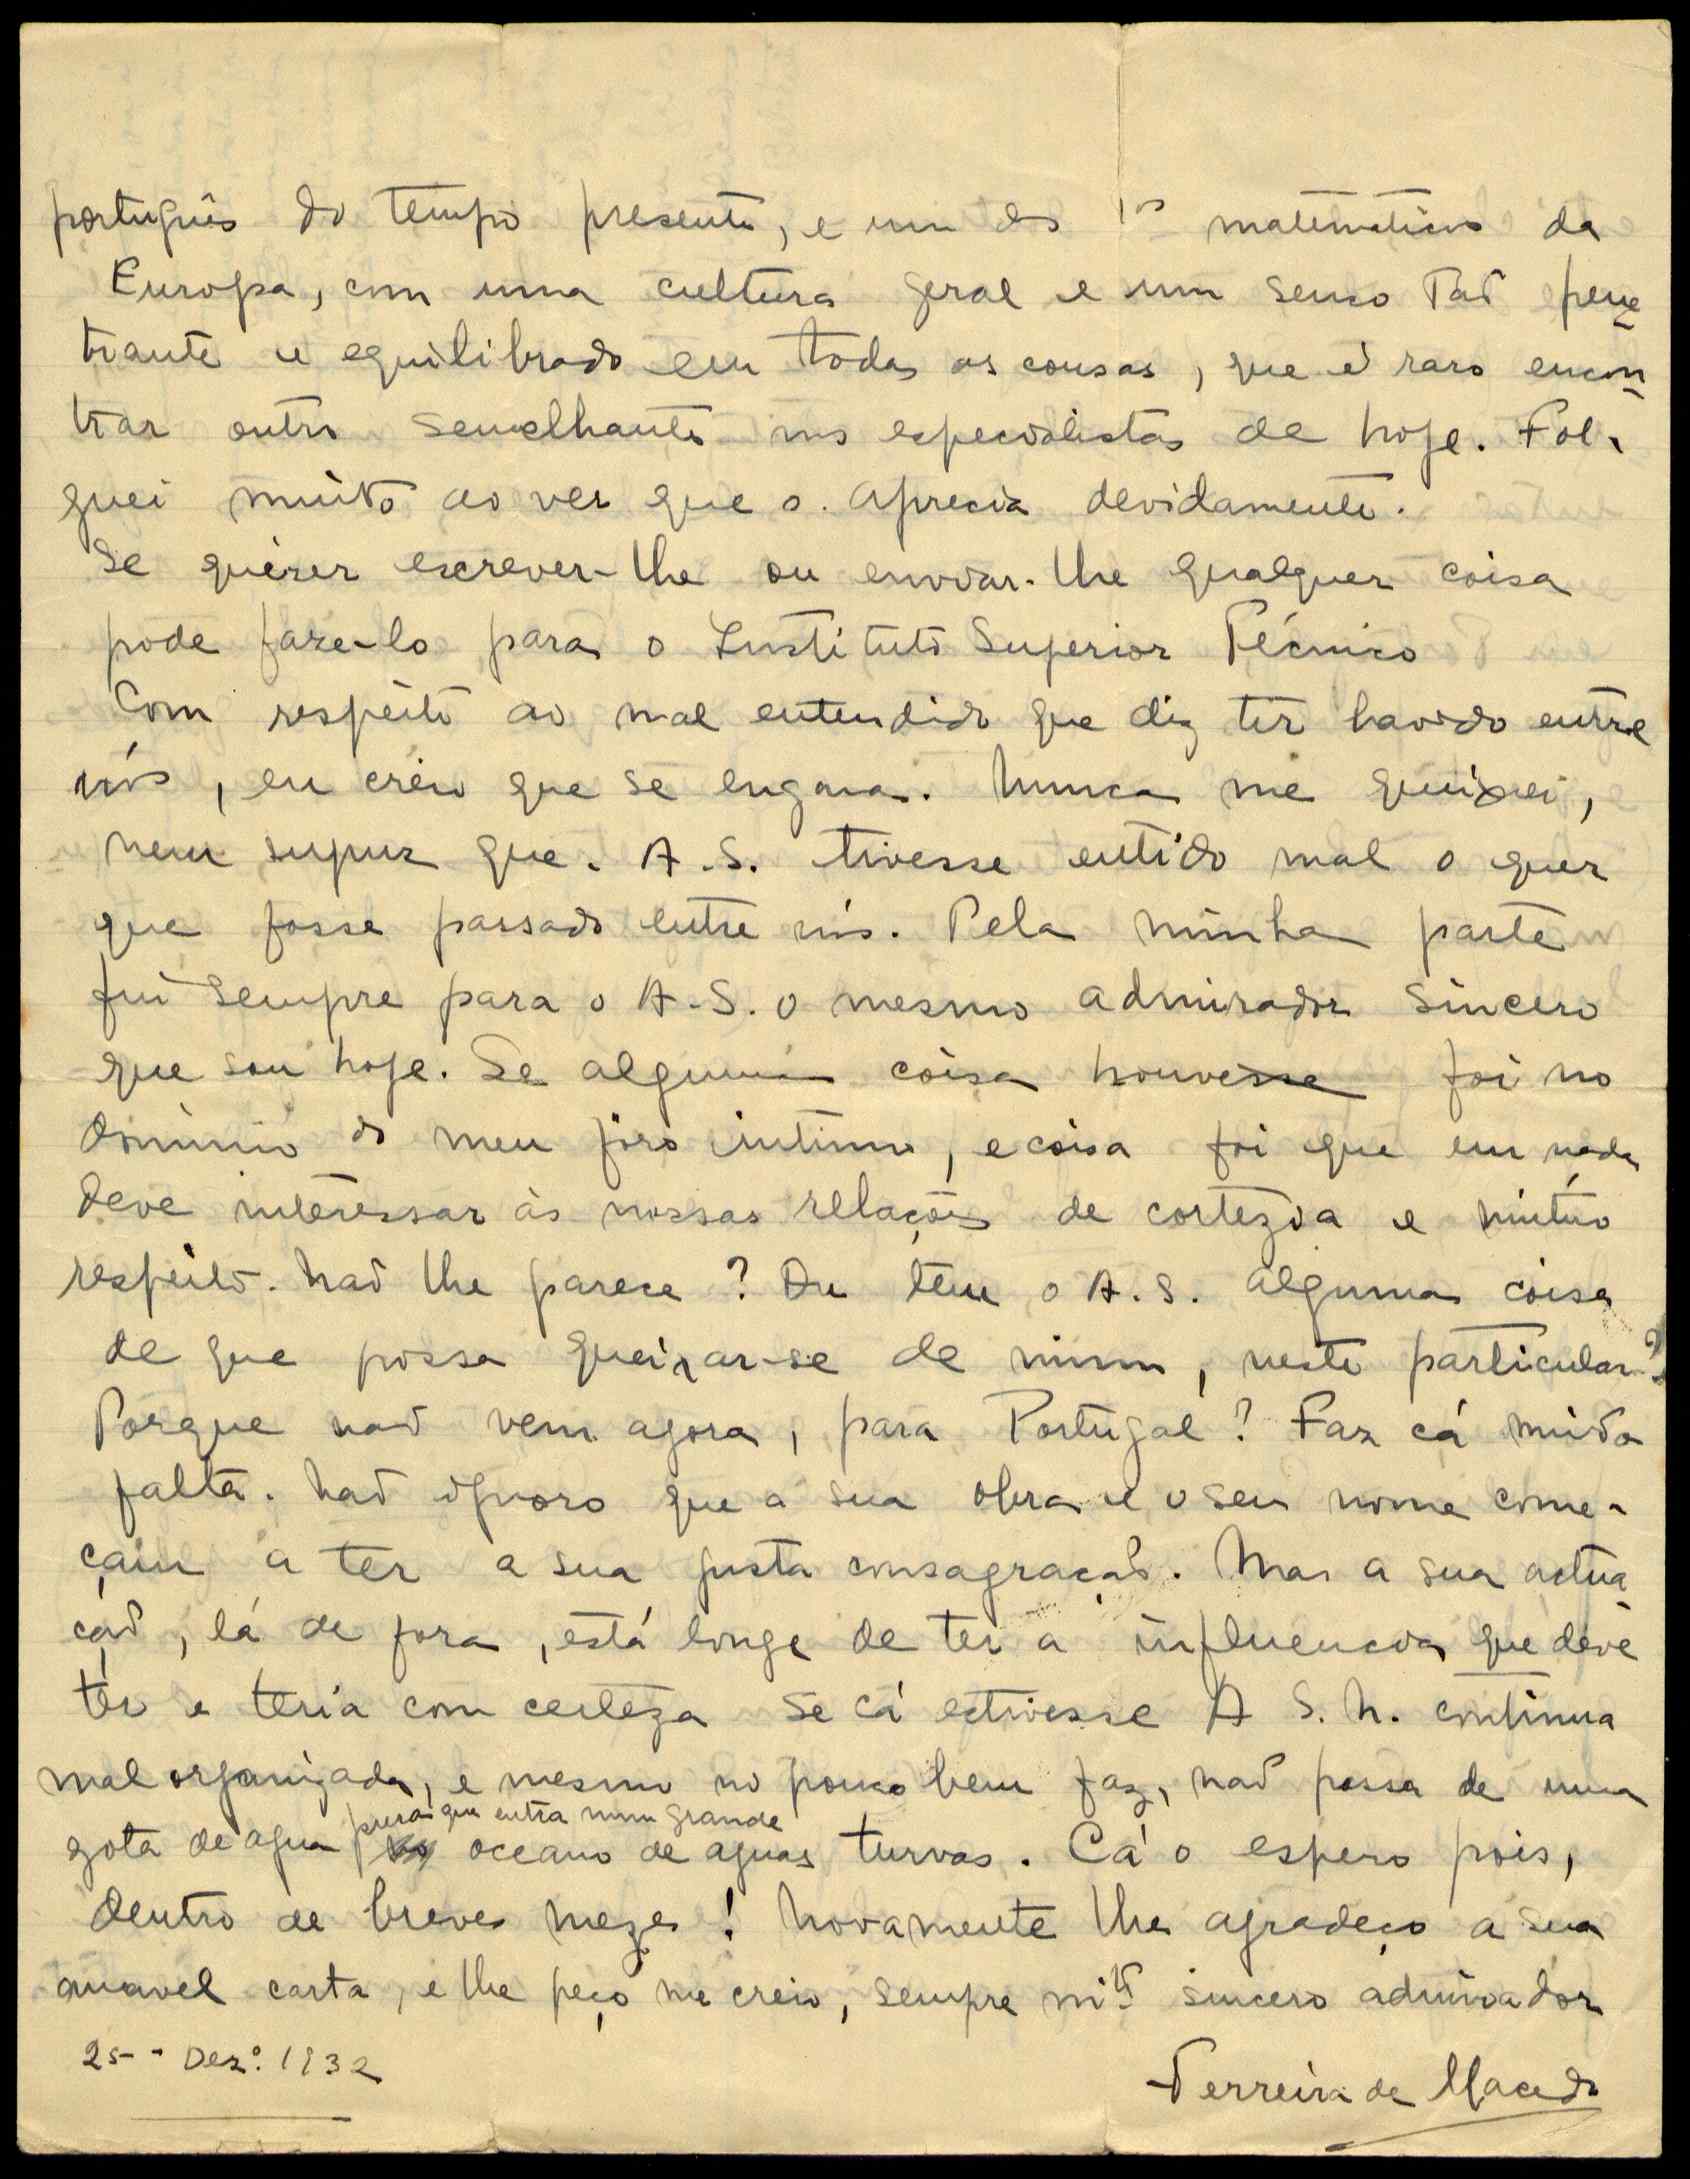 português do tempo presente, e um dos 1ºs matematicos da
Europa, com uma cultura geral e um senso tão pene
trante e equilibrado em todas as cousas, que é raro encon
trar outro semelhante nos especialistas de hoje. Fol-
guei muito ao ver que o aprecia devidamente.
Se quiser escrever-lhe ou enviar-lhe qualquer coisa
pode faze-lo para o Instituto Superior Técnico
Com respeito ao mal entendido que diz ter havido entre
nós, eu creio que se engana. Nunca me queixei,
nem supuz que A.S. tivesse entido mal o quer
que fosse passado entre nós. Pela minha parte
fui sempre para o A.S. o mesmo admirador sincero
que sou hoje. Se alguma coisa houvesse foi no
dominio do meu fôro intimo, e coisa foi que em nada
deve interessar às nossas relações de cortezia e mútuo
respeito. Não lhe parece? Ou tem o A.S. alguma coisa
de que possa queixar-se de mim, neste particular?
Porque não vem agora, para Portugal? Faz cá muita
falta. Não ignoro que a sua obra e o seu nome come-
çam a ter a sua justa consagração. Mas a sua actua
ção, lá de fora, está longe de ter a influencia que deve
ter e teria com certeza se cá estivesse A S.N. continua
mal organizada, e mesmo no pouco bem faz, não passa de uma
gota de agua pura que entra num grande oceano de aguas turvas. Cá o espero pois,
dentro de breves mezes! Novamente lhe agradeço a sua
amavel carta, e lhe peço me creia, sempre mtº sincero admirador
25 - Dezº. 1932
Ferreira de Macedo